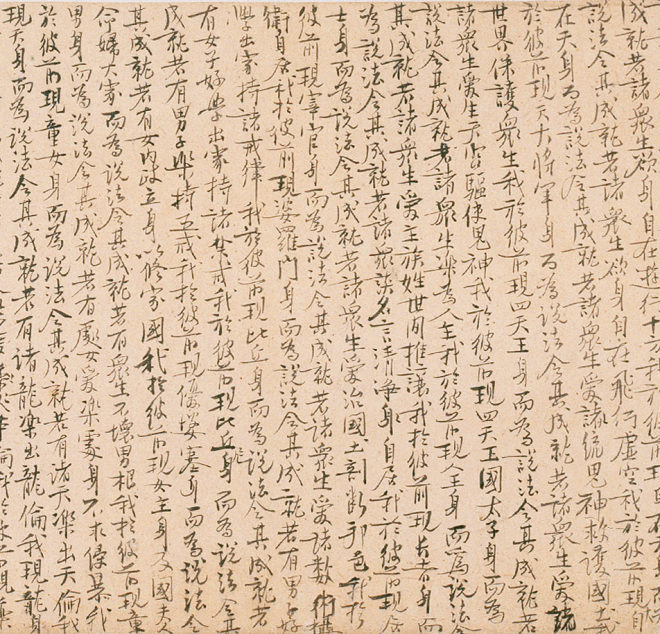 成就若諸衆生欲身自在遊行十方我於彼前現自在天身而為
說法令其成就若諸衆生欲身自在飛行虛空我於彼前現大自
在天身而為說法令其成就若諸衆生愛諸統鬼神救護國土我
於彼前現天大將軍身而為說法令其成就若諸衆生愛統
世界保護衆生我於彼前現四天王身而為說法令其成就若
諸衆生愛生天宮驅使鬼神我於彼前現四天王國太子身而為
說法令其成就若諸衆生樂為人主我於彼前現人王身而為說法令
其成就若諸衆生愛主族姓世間推讓我於彼前現長者身而
為說法令其成就若諸衆生談名言清淨身自居我於彼前現居
士身而為說法令其成就若諸衆生愛治國土剖斷邦邑我於
彼前現宰官身而為說法令其成就若諸衆生愛諸數術攝
衛自居我於彼前現婆羅門身而為說法令其成就若有男子好
學出家持諸戒律我於彼前現比丘身而為說法令其成就若
有女子好學出家持諸禁戒我於彼前現比丘尼身而為說法令其
成就若有男子樂持五戒我於彼前現優婆塞身而為說法令
其成就若有女內政立身以修家國我於彼前現女主身及國夫人
命婦大家而為說法令其成就若有衆生不壞男根我於彼前現童
男身而為說法令其成就若有處女愛樂處身不求侵暴我
於彼前現童女身而為說法令其成就若有諸天樂出天倫我
現天身而為說法令其成就若有諸龍樂出龍倫我現龍身